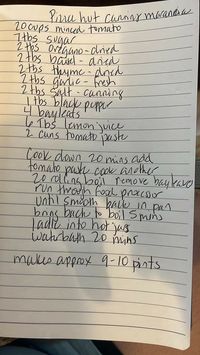 Pizza hut canning marandra
20 cups minced tomato
7 tbs sugar
2 tbs oregano - dried
2 tbs basil - dried
2 tbs thyme - dried
2 tbs garlic - fresh
2 tbs salt - canning
1 tbs black pepper
4 bay leafs
6 Tbs lemon juice
2 cans tomato paste
Cook down 20 mins add
tomato paste cook another
20 rolling boil remove bay leaves
run through food processor
until smooth back in pan
bring back to boil 5 mins
ladle into hot jars
waterbath 20 mins
makes approx 9-10 pints